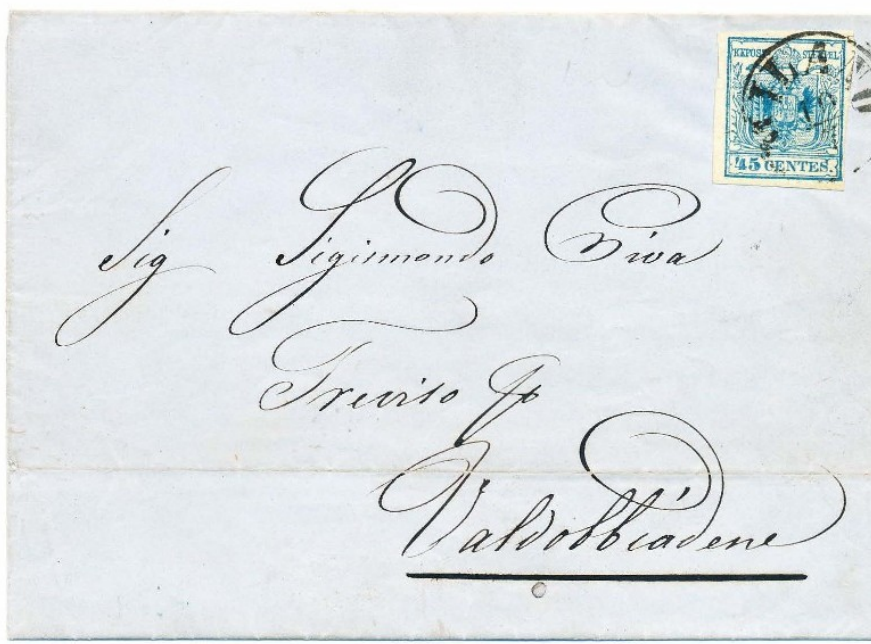 KKPOST STEMPEL
MILA
45 CENTES.
Sig Sigismondo Piva
Treviso
Valdobbiadene